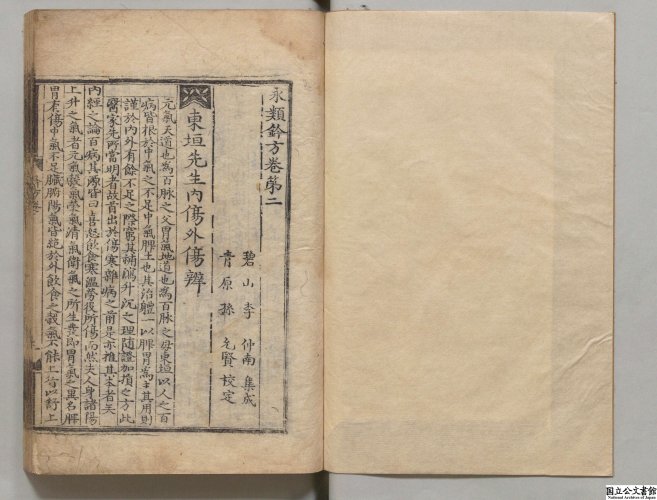 永類鈐方卷第二
碧山李 仲南 集成
青原孫 允賢 校定
東垣先生內傷外傷辨
元氣天道也為百脉之父胃氣地道也為百脉之母東垣以人之百
病皆根於中氣之不足中氣脾土也其治體一以脾胃為主其用則
謹於內外有餘不足之際窮其補瀉升沉之理隨證加損之方此
醫家先所當明者故首出於傷寒雜病之前是亦推其本者矣
內經之論百病其源皆曰喜怒飲食寒溫勞役所傷而然夫人身諸陽
上升之氣者元氣穀氣榮氣清氣衛氣之所生發即胃氣之異名脾
胃有傷中氣不足臟腑陽氣皆絕於外飲食之穀氣不能上行以舒上
国立公文書館
National Archives of Japan